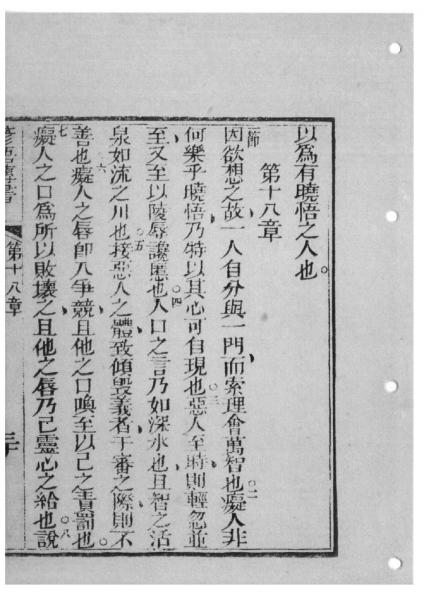 以爲有曉悟之人也。
第十八章
一節因欲想之故一人自分與一門而索理會萬智也二癡人非
何樂乎曉悟乃特以其心可自現也三惡人至時則輕忽並
至又至以陵辱讒慝也四人口之言乃如深水也且智之活
泉如流之川也五接惡人之體致傾毀義者于審之際則不
善也六癡人之唇即入爭競且他之口喚至以己之責罰也
七癡人之口爲所以敗壞之且他之唇乃己靈心之給也八說
第十八章